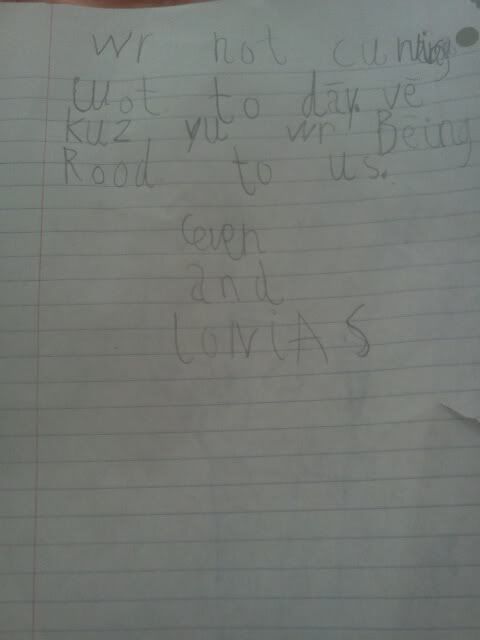 wr not cuming
wot to dāy. vē
kuz yu wr Bēing
Rood to us.
Ceven
and
loNiAS